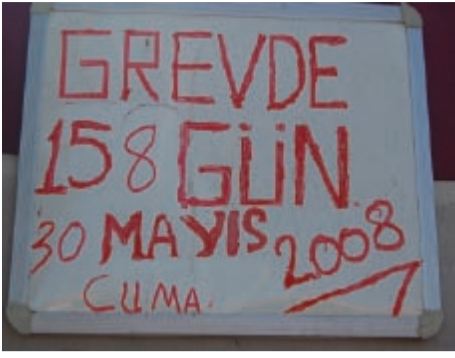 GREVDE
158 GÜN.
30 MAYIS 2008
CUMA.